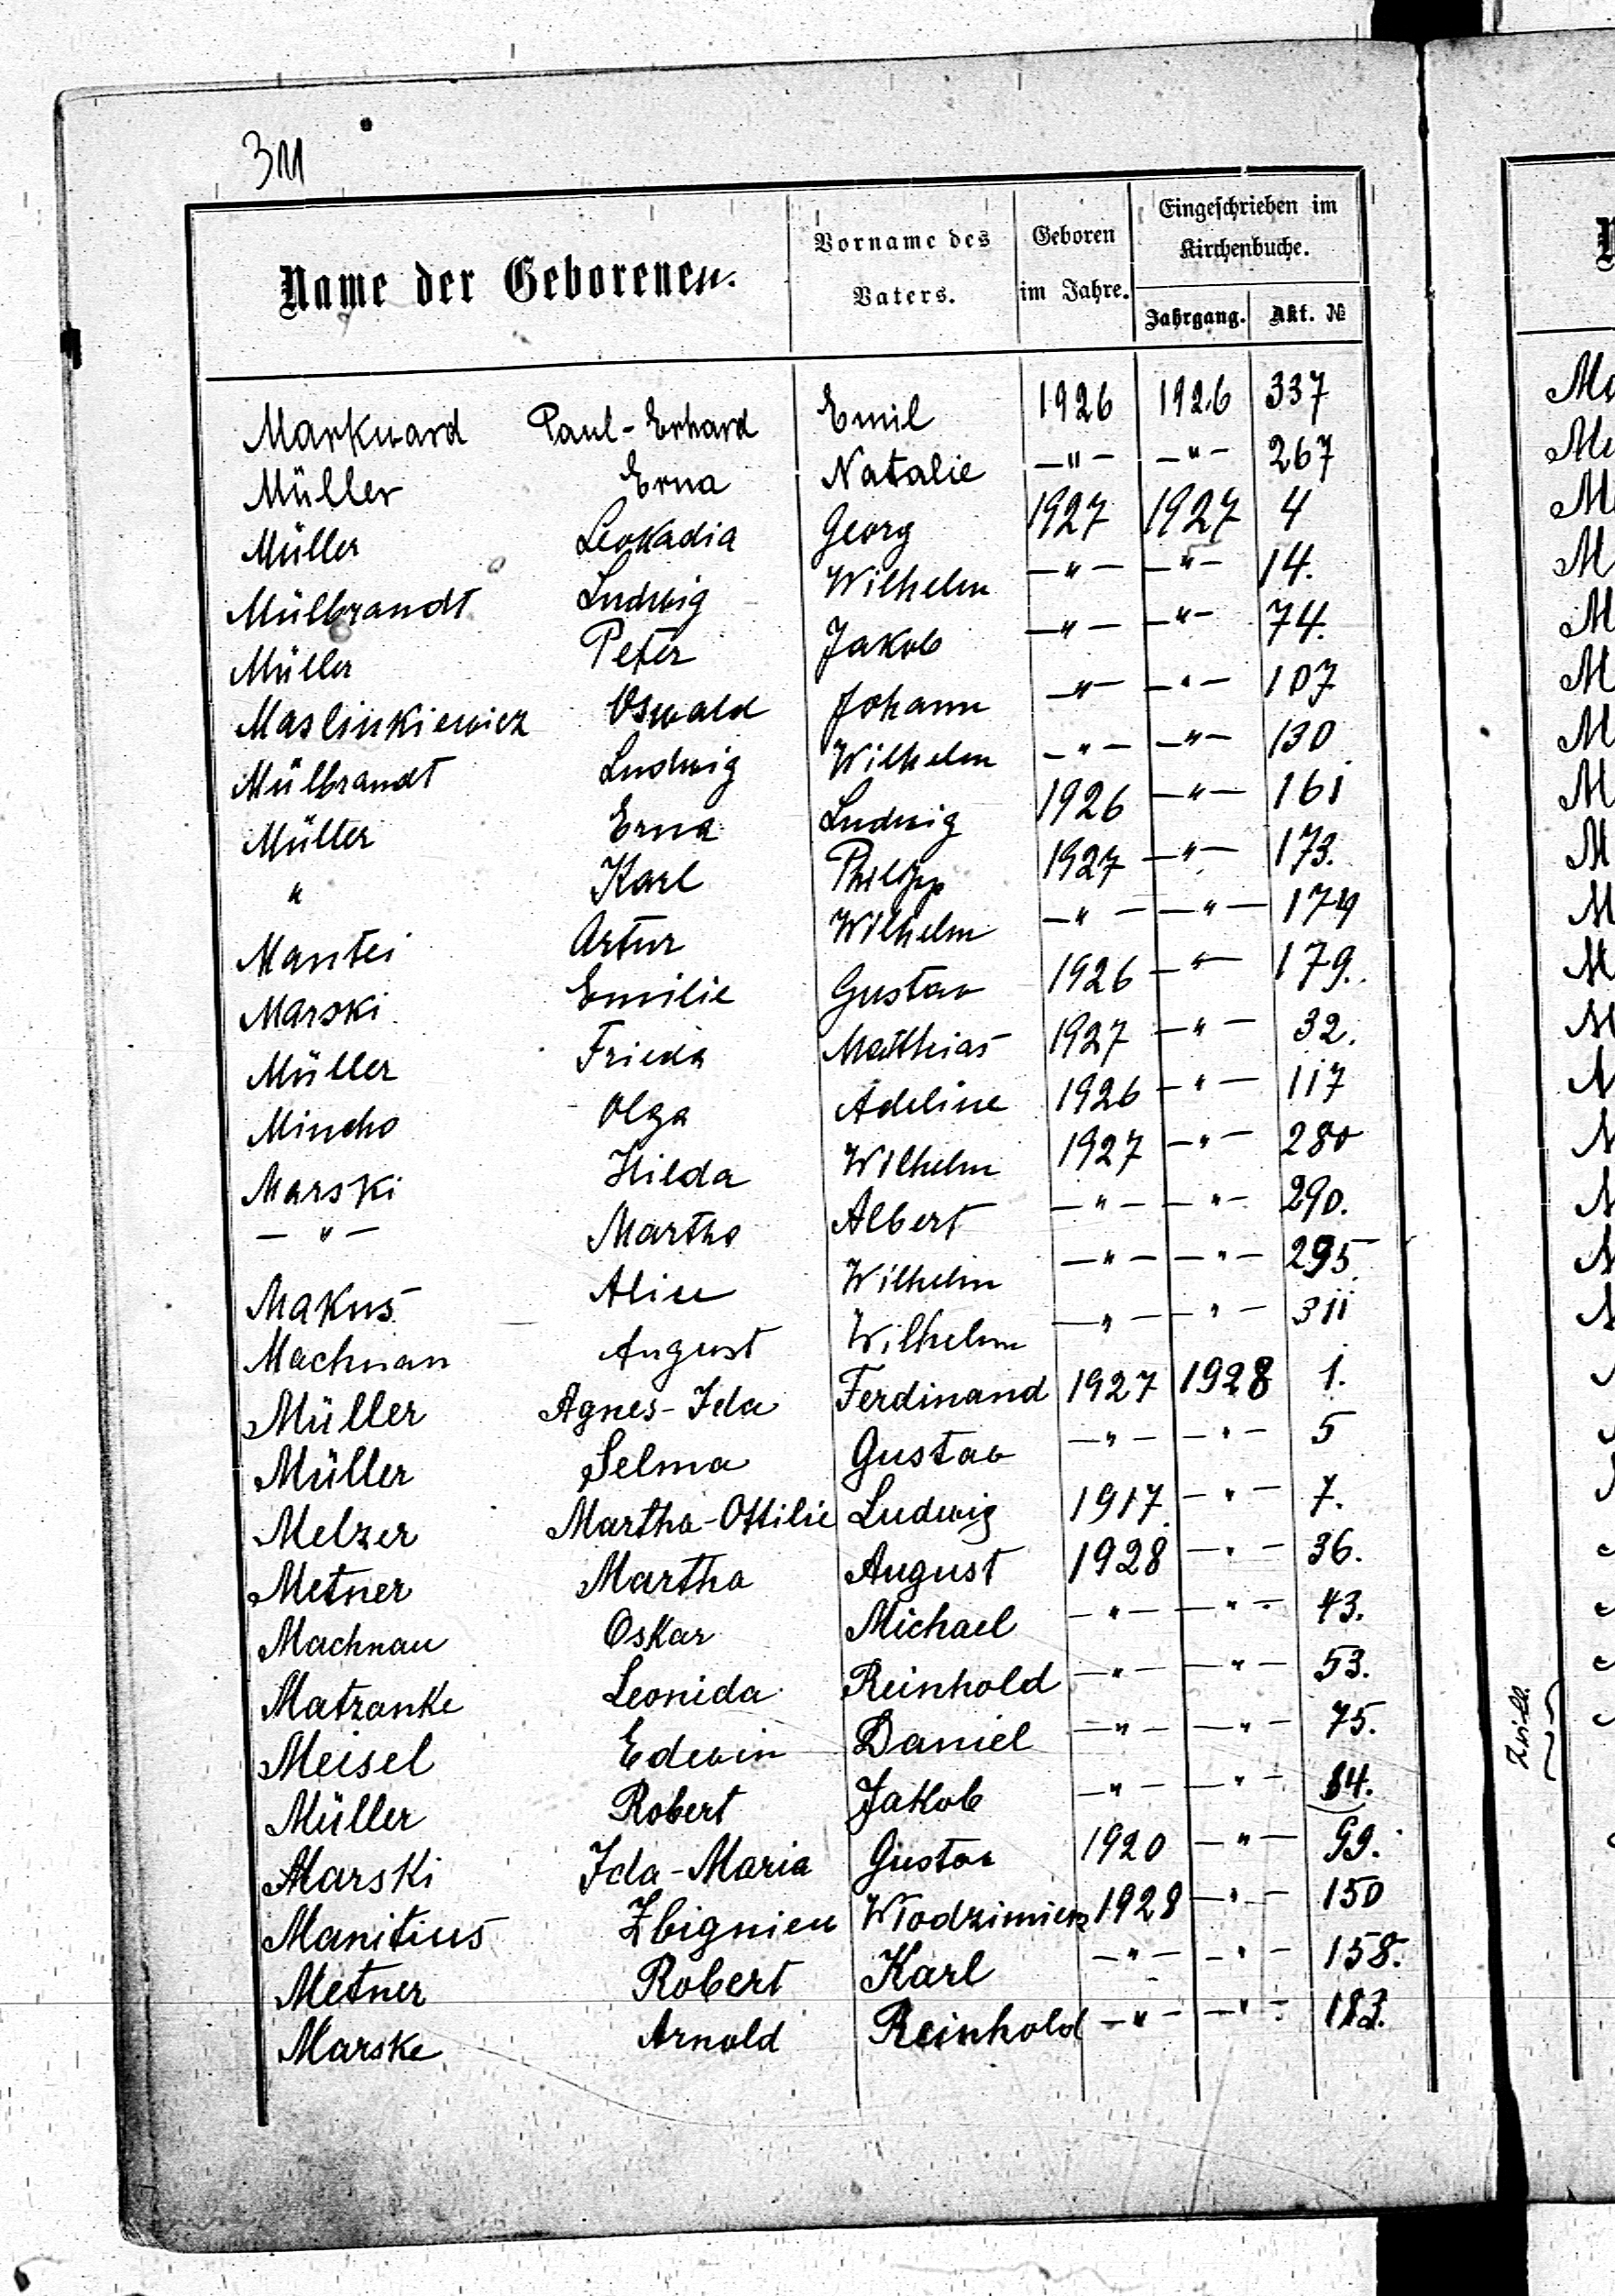 311
Name der Geborenen. Vorname des Vaters. Geboren im Jahre. Eingeschrieben im Kirchenbuche. Jahrgang. Akt. №
Markward Paul-Erhard Emil 1926 1926 337
Müller Erna Natalie —"— —"— 267
Müller Leokadia Georg 1927 1927 4
Mülbrandt Ludwig Wilhelm —"— —"— 14.
Müller Peter Jakob —"— —"— 74.
Maslinkiewicz Oswald Johann —"— —"— 107
Mülbrandt Ludwig Wilhelm —"— —"— 130
Müller Erna Ludwig 1926 —"— 161
" Karl Philipp 1927 —"— 173.
Mantei Artur Wilhelm —"— —"— 174
Marski Emilie Gustav 1926 —"— 179.
Müller Frieda Matthias 1927 —"— 32.
Mincho Olga Adeline 1926 —"— 117
Marski Hilda Wilhelm 1927 —"— 280
—"— Martha Albert —"— —"— 290.
Makus Alice Wilhelm —"— —"— 295
Machnau August Wilhelm —"— —"— 311
Müller Agnes-Ida Ferdinand 1927 1928 1.
Müller Selma Gustav —"— —"— 5
Melzer Martha-Ottilie Ludwig 1917 —"— 7.
Metner Martha August 1928 —"— 36.
Machnau Oskar Michael —"— —"— 43.
Matzanke Leonida Reinhold —"— —"— 53.
Meisel Edwin Daniel —"— —"— 75.
Müller Robert Jakob —"— —"— 84.
Marski Ida-Maria Gustav 1920 —"— 99.
Manitius Zbigniew Wlodzimierz 1928 —"— 150
Metner Robert Karl —"— —"— 158.
Marske Arnold Reinhold —"— —"— 183.